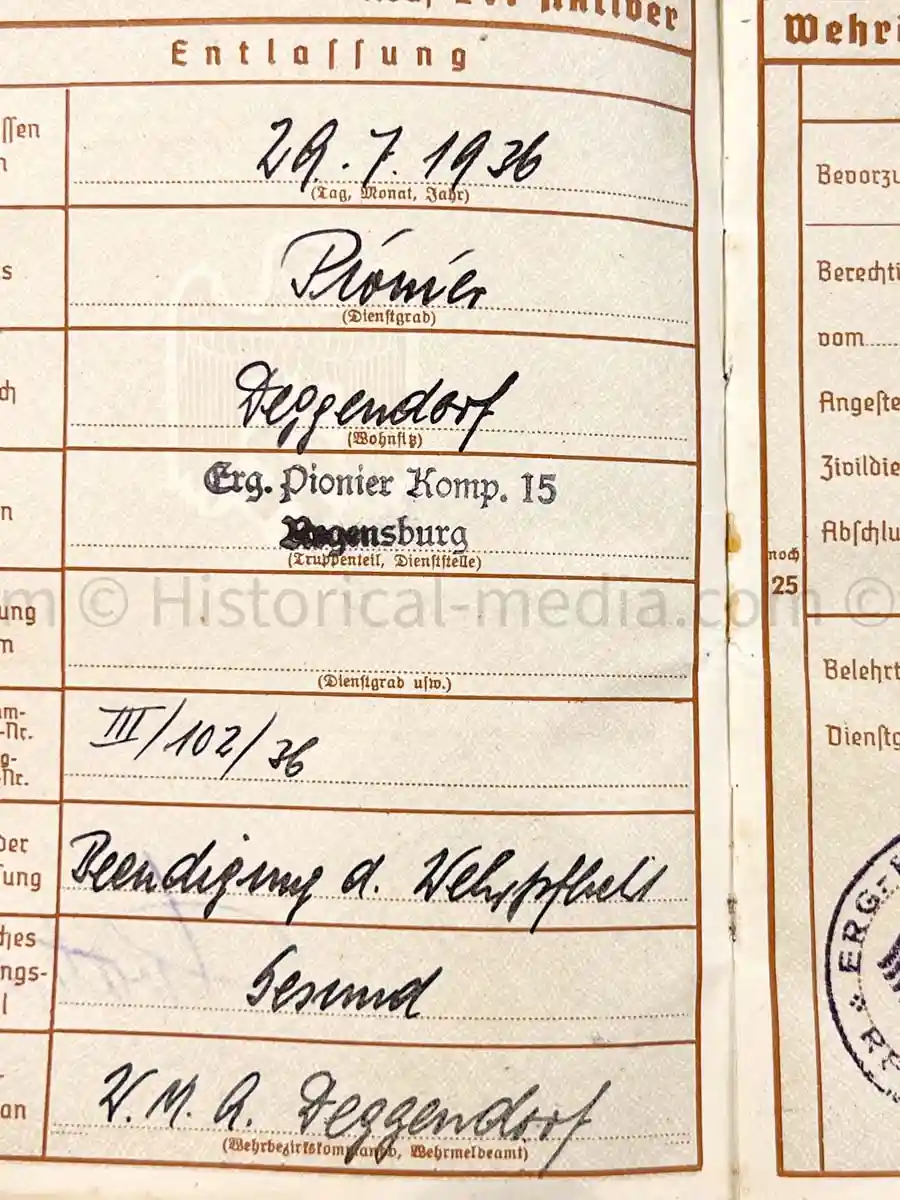 der Aktiver
Entlassung
ssen
29.7.1936
(Tag, Monat, Jahr)
s
Pionier
(Dienstgrad)
ch
Deggendorf
(Wohnsitz)
n
Erg. Pionier Komp. 15
Regensburg
(Truppenteil, Dienststelle)
ung
m
(Dienstgrad usw.)
am-
-Nr.
g-
-Nr.
III/102/36
der
sung
Beendigung d. Wehrpflicht
ches
ngs-
l
Gesund
an
W. M. A. Deggendorf
(Wehrbezirkskommando, Wehrmeldeamt)
m © Historical-media.com ©
Wehr
Bevorzu
Berechti
vom
Angeste
Zivildie
Abschlu
noch
25
Belehrt
Dienstg
ERG-
RE